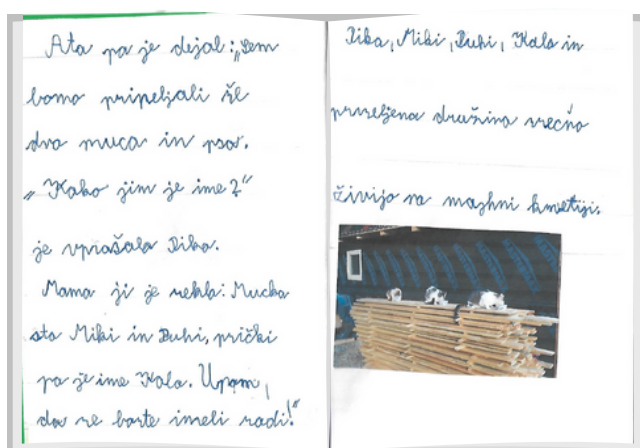 Ata pa je dejal: „Sem
bomo pripeljali še
dva muca in psa."
„Kako jim je ime?"
je vprašala Pika.
Mama ji je rekla: Mucka
sta Miki in Puhi,
pa je ime Kala. Upam,
da se boste imeli radi!"
Pika, Miki, Puhi, Kala in
družina srečno
živijo na majhni kmetiji.